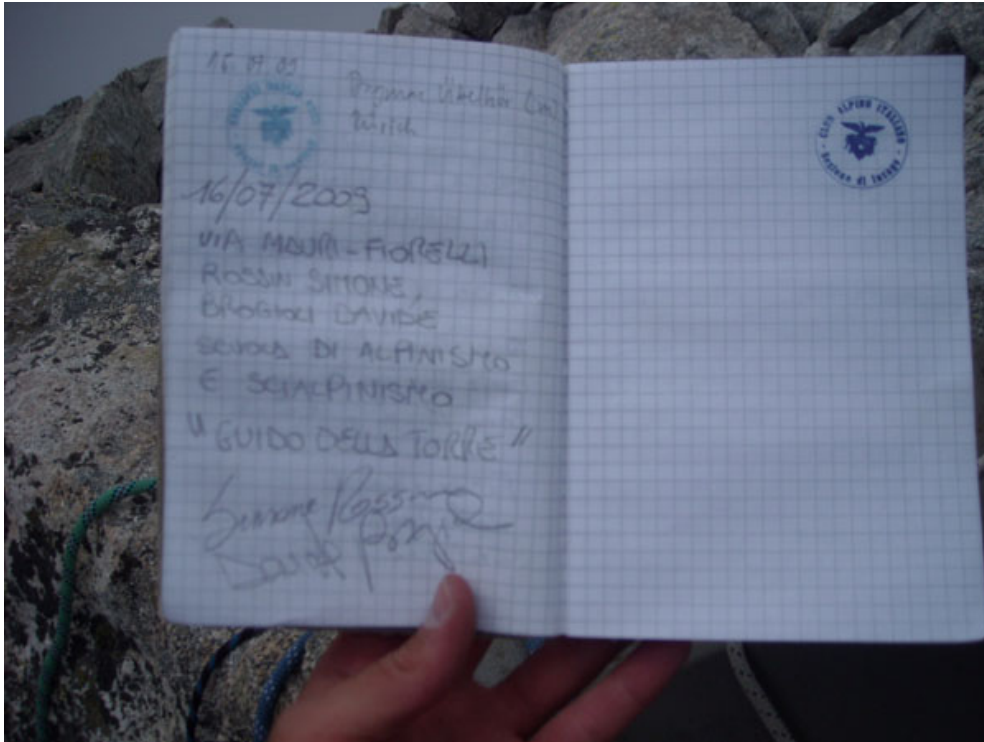 16.07.09
Zürich
16/07/2009
VIA MAURI-FIORELLI
ROSSIN SIMONE,
BROGIOLI DAVIDE
SCUOLA DI ALPINISMO
E SCIALPINISMO
"GUIDO DELLA TORRE"
Simone Rossin
CLUB ALPINO ITALIANO
Sezione di